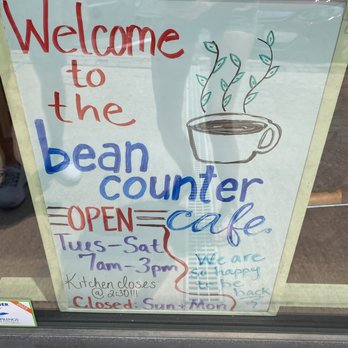 Welcome
to
the
bean
counter
cafe.
OPEN
Tues-Sat
7am-3pm
Kitchen closes
@ 2:30!!!
Closed: Sun + Mon
We are
so happy
to be
back